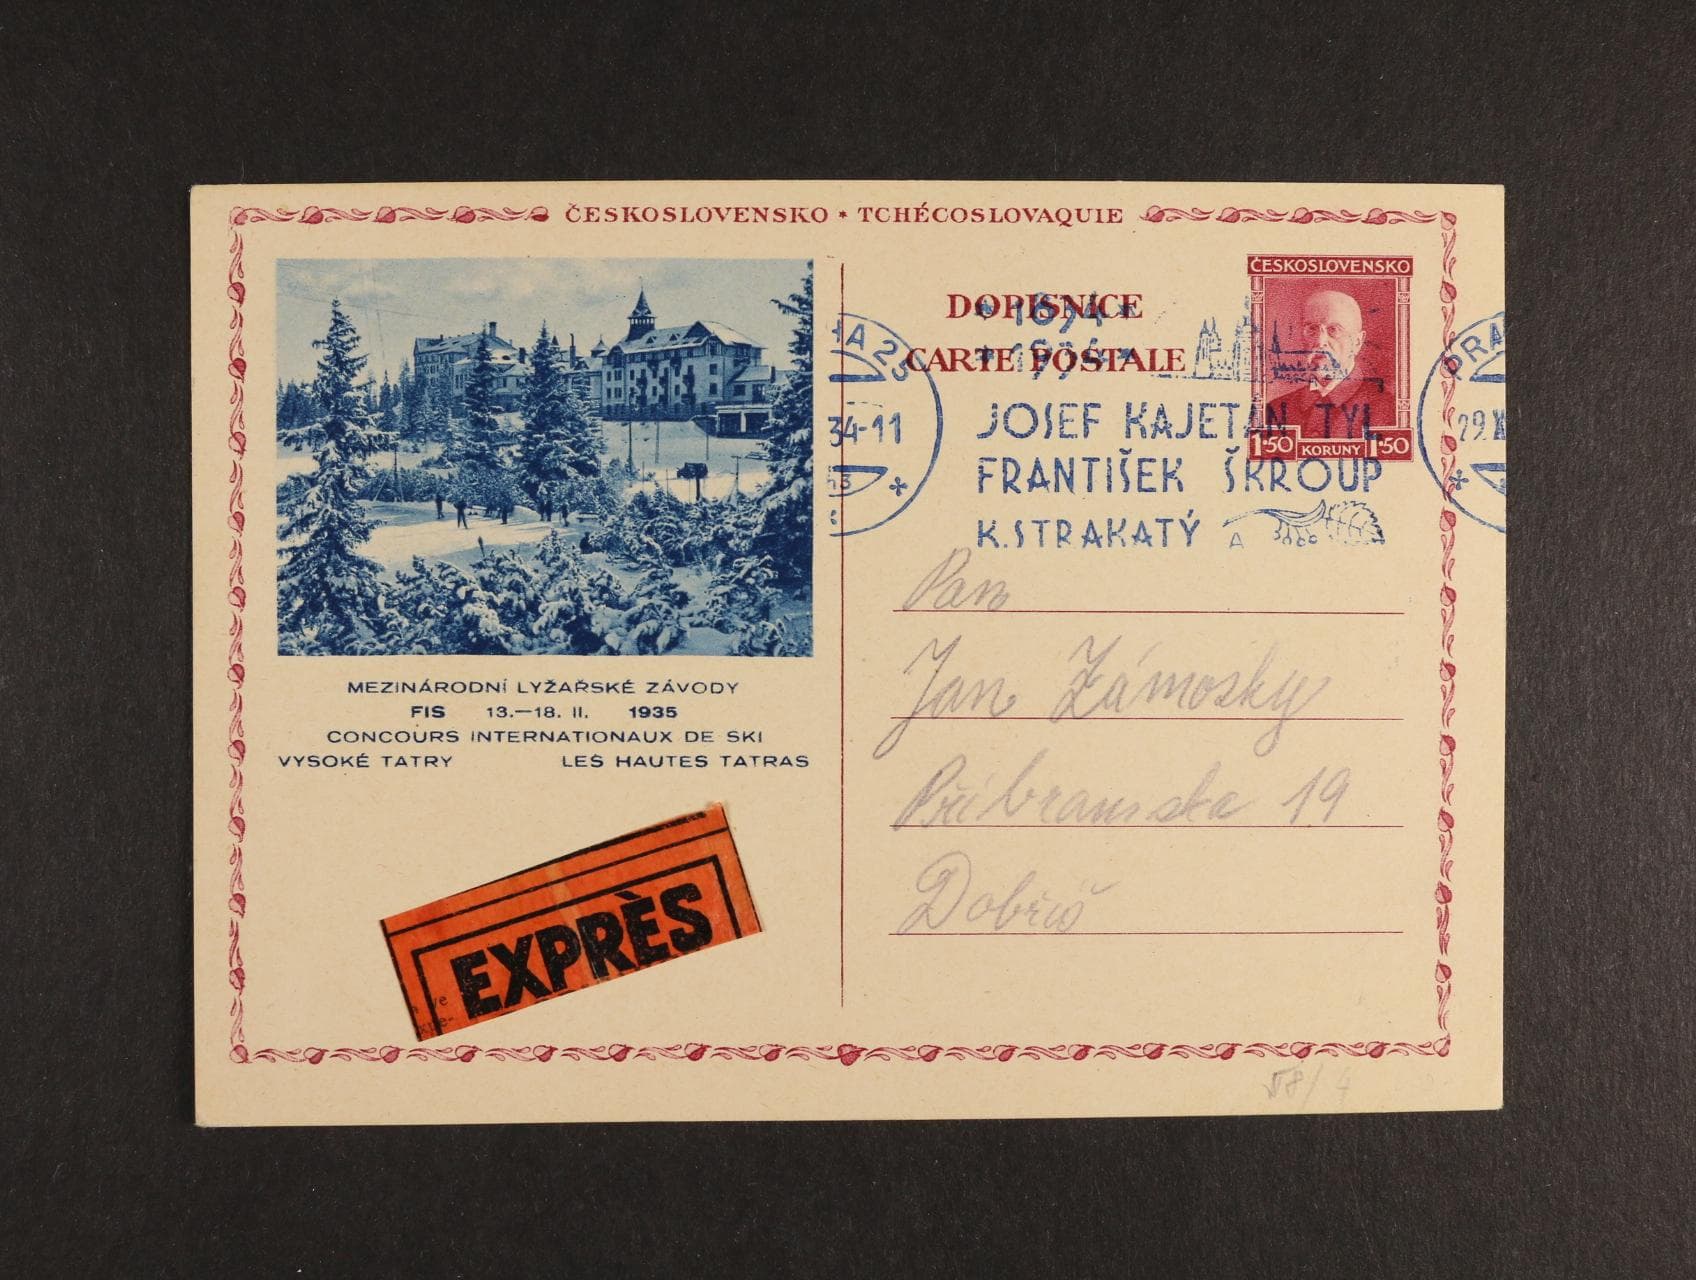 ČESKOSLOVENSKO * TCHÉCOSLOVAQUIE
DOPISNICE
CARTE POSTALE
ČESKOSLOVENSKO
1·50 KORUNY 1·50
* 1834 *
* 1934 *
JOSEF KAJETÁN TYL
FRANTIŠEK ŠKROUP
K. STRAKATÝ
HA 25
34-11
*
PRA
29.X
*
MEZINÁRODNÍ LYŽAŘSKÉ ZÁVODY
FIS 13.—18. II. 1935
CONCOURS INTERNATIONAUX DE SKI
VYSOKÉ TATRY LES HAUTES TATRAS
EXPRÈS
Pan
Jan Zámosky
Příbramska 19
Dobříš
58/4